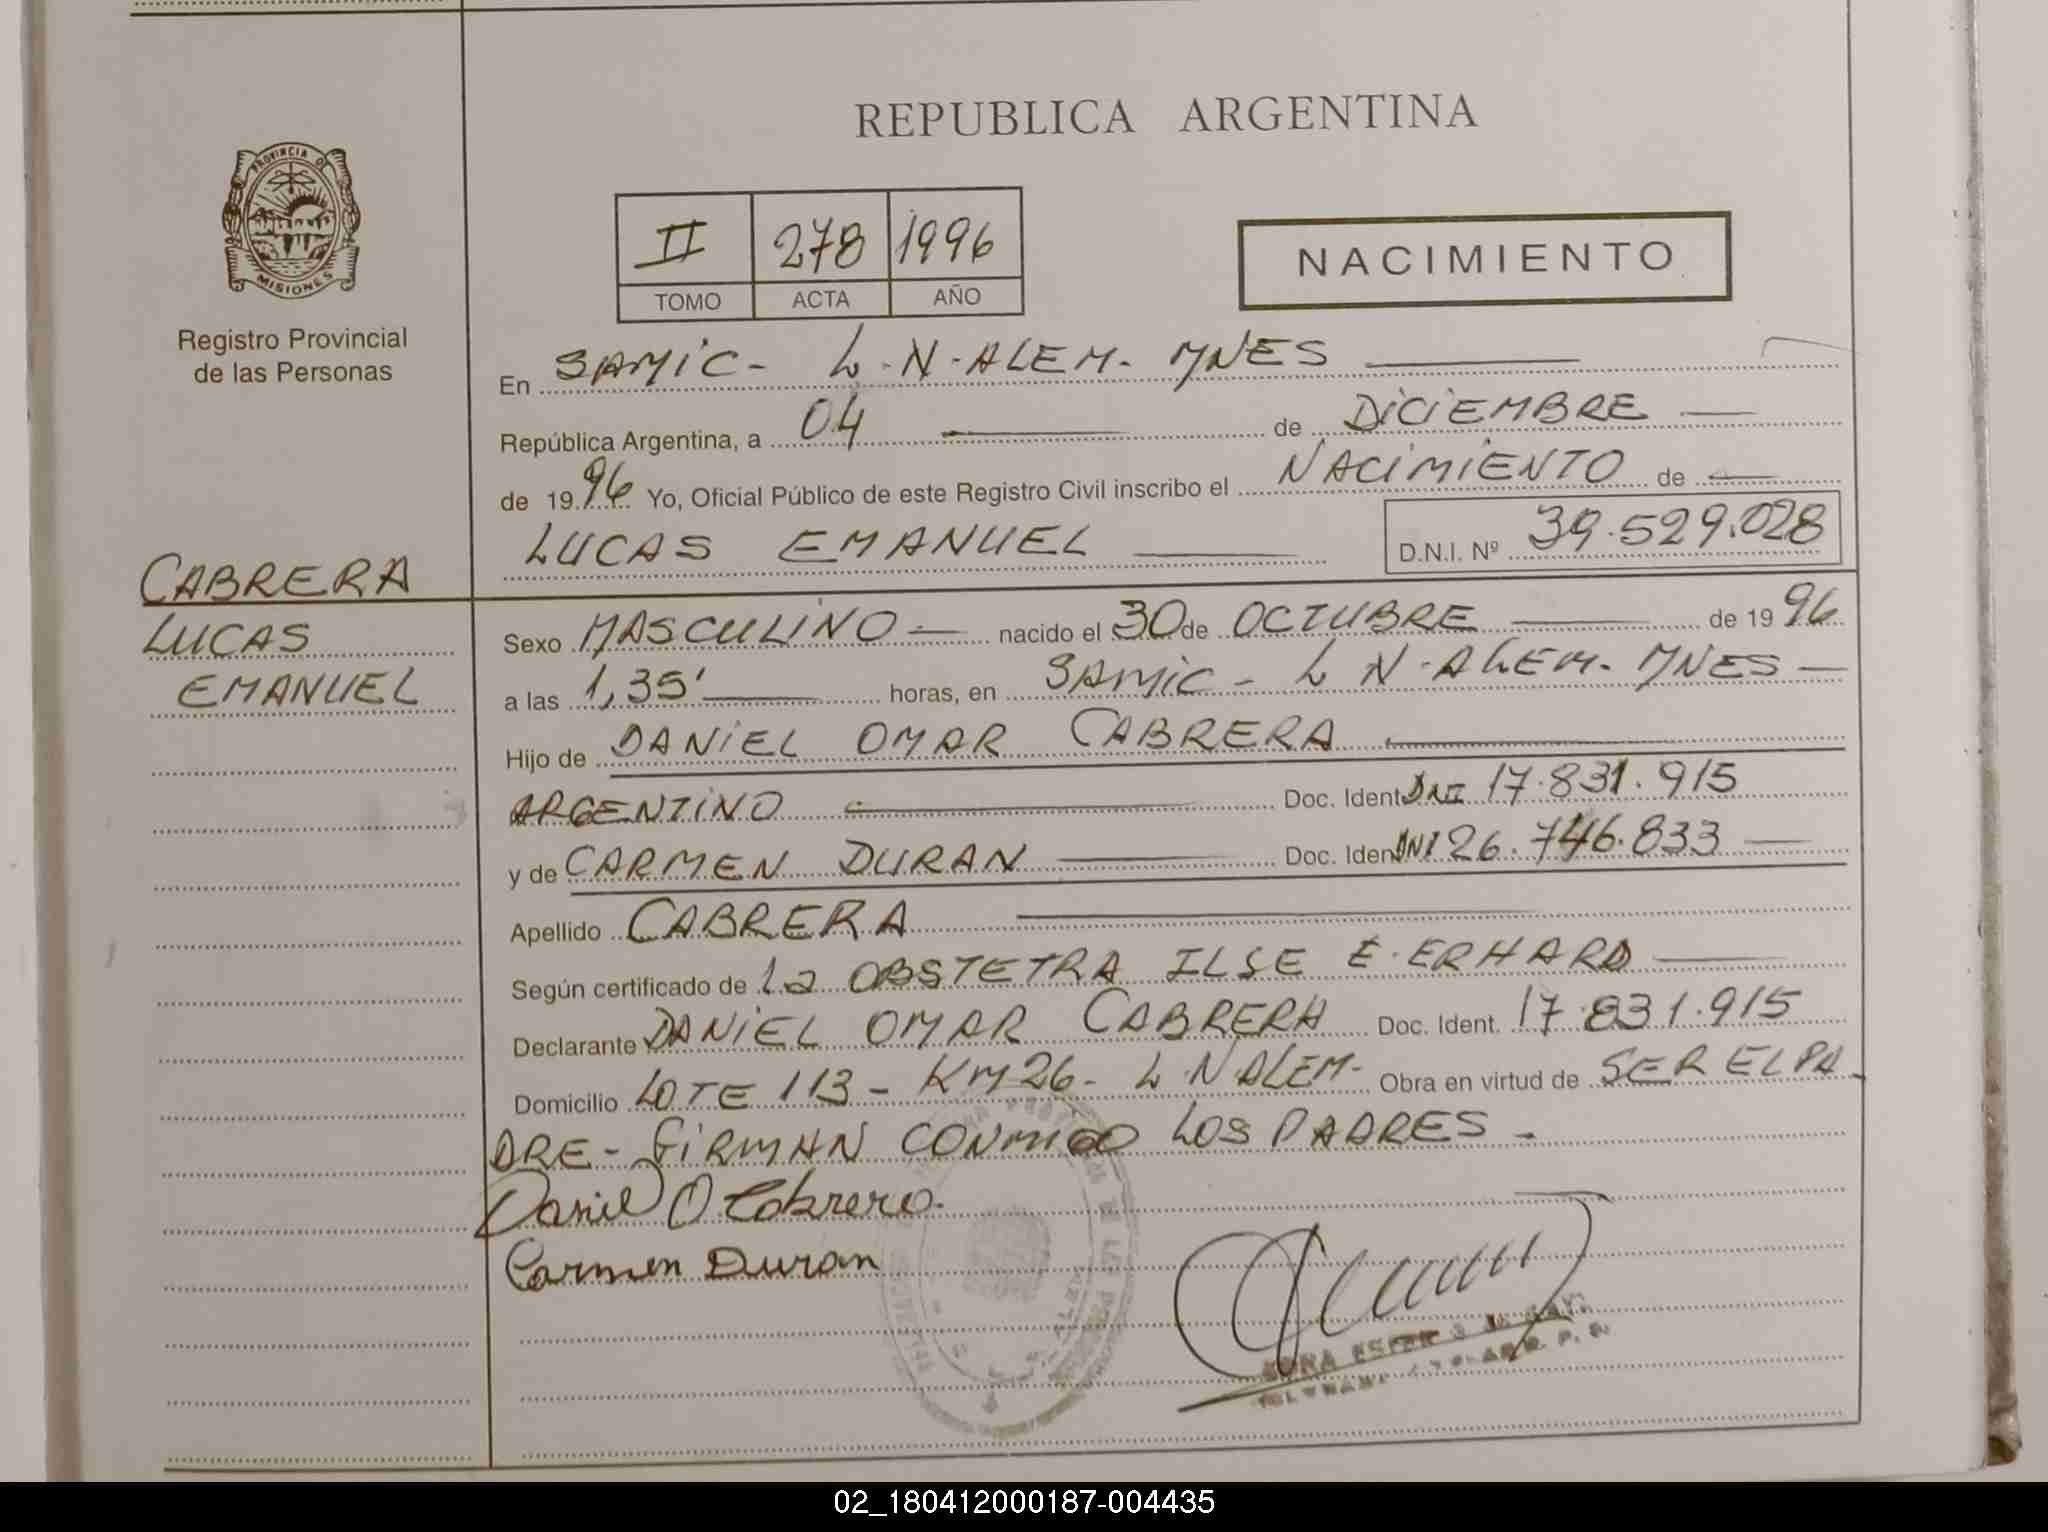 REPUBLICA ARGENTINA
PROVINCIA DE
MISIONES
Registro Provincial
de las Personas
II 278 1996
TOMO ACTA AÑO
NACIMIENTO
En SAMIC- L.N.ALEM. MNES
República Argentina, a 04 de DICIEMBRE
de 1996 Yo, Oficial Público de este Registro Civil inscribo el NACIMIENTO de
LUCAS EMANUEL D.N.I. Nº 39.529.028
CABRERA
LUCAS
EMANUEL
Sexo MASCULINO nacido el 30 de OCTUBRE de 1996
a las 1,35' horas, en SAMIC - L N. ALEM. MNES
Hijo de DANIEL OMAR CABRERA
ARGENTINO Doc. Ident DNI 17.831.915
y de CARMEN DURAN Doc. Iden DNI 26.746.833
Apellido CABRERA
Según certificado de la OBSTETRA ILSE E. ERHARD
Declarante DANIEL OMAR CABRERA Doc. Ident. 17.831.915
Domicilio LOTE 113 - KM 26- L.N.ALEM- Obra en virtud de SER EL PA-
DRE - FIRMAN CONMIGO LOS PADRES -
Daniel O Cabrera.
Carmen Duran
02_180412000187-004435